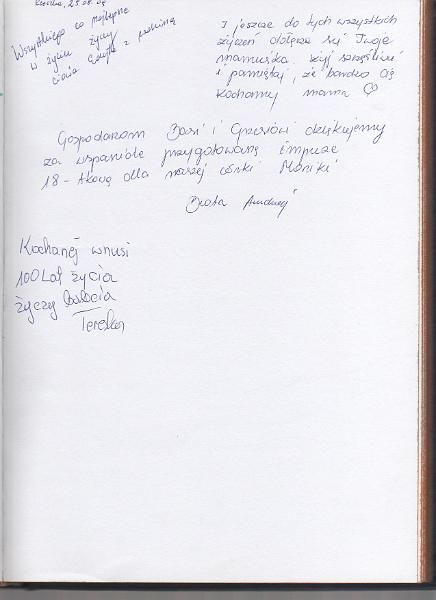 Wszystkiego co najlepsze
w życiu życzy
ciocia z rodziną
I jeszcze do tych wszystkich
życzeń dołącza się Twoja
mamuśka. Żyj szczęśliwie
i pamiętaj, że bardzo Cię
kochamy mama ♡
Gospodarom Basi i Grzesiowi dziękujemy
za wspaniale przygotowaną imprezę
18-tkową dla naszej córki Moniki
Beata Andrzej
Kochanej wnusi
100 Lat życia
życzy babcia
Tereska